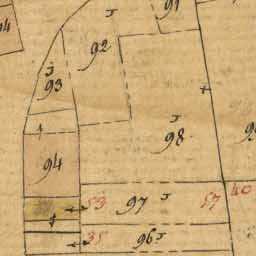 91
92
93
98
94
53
97
57
40
35
96